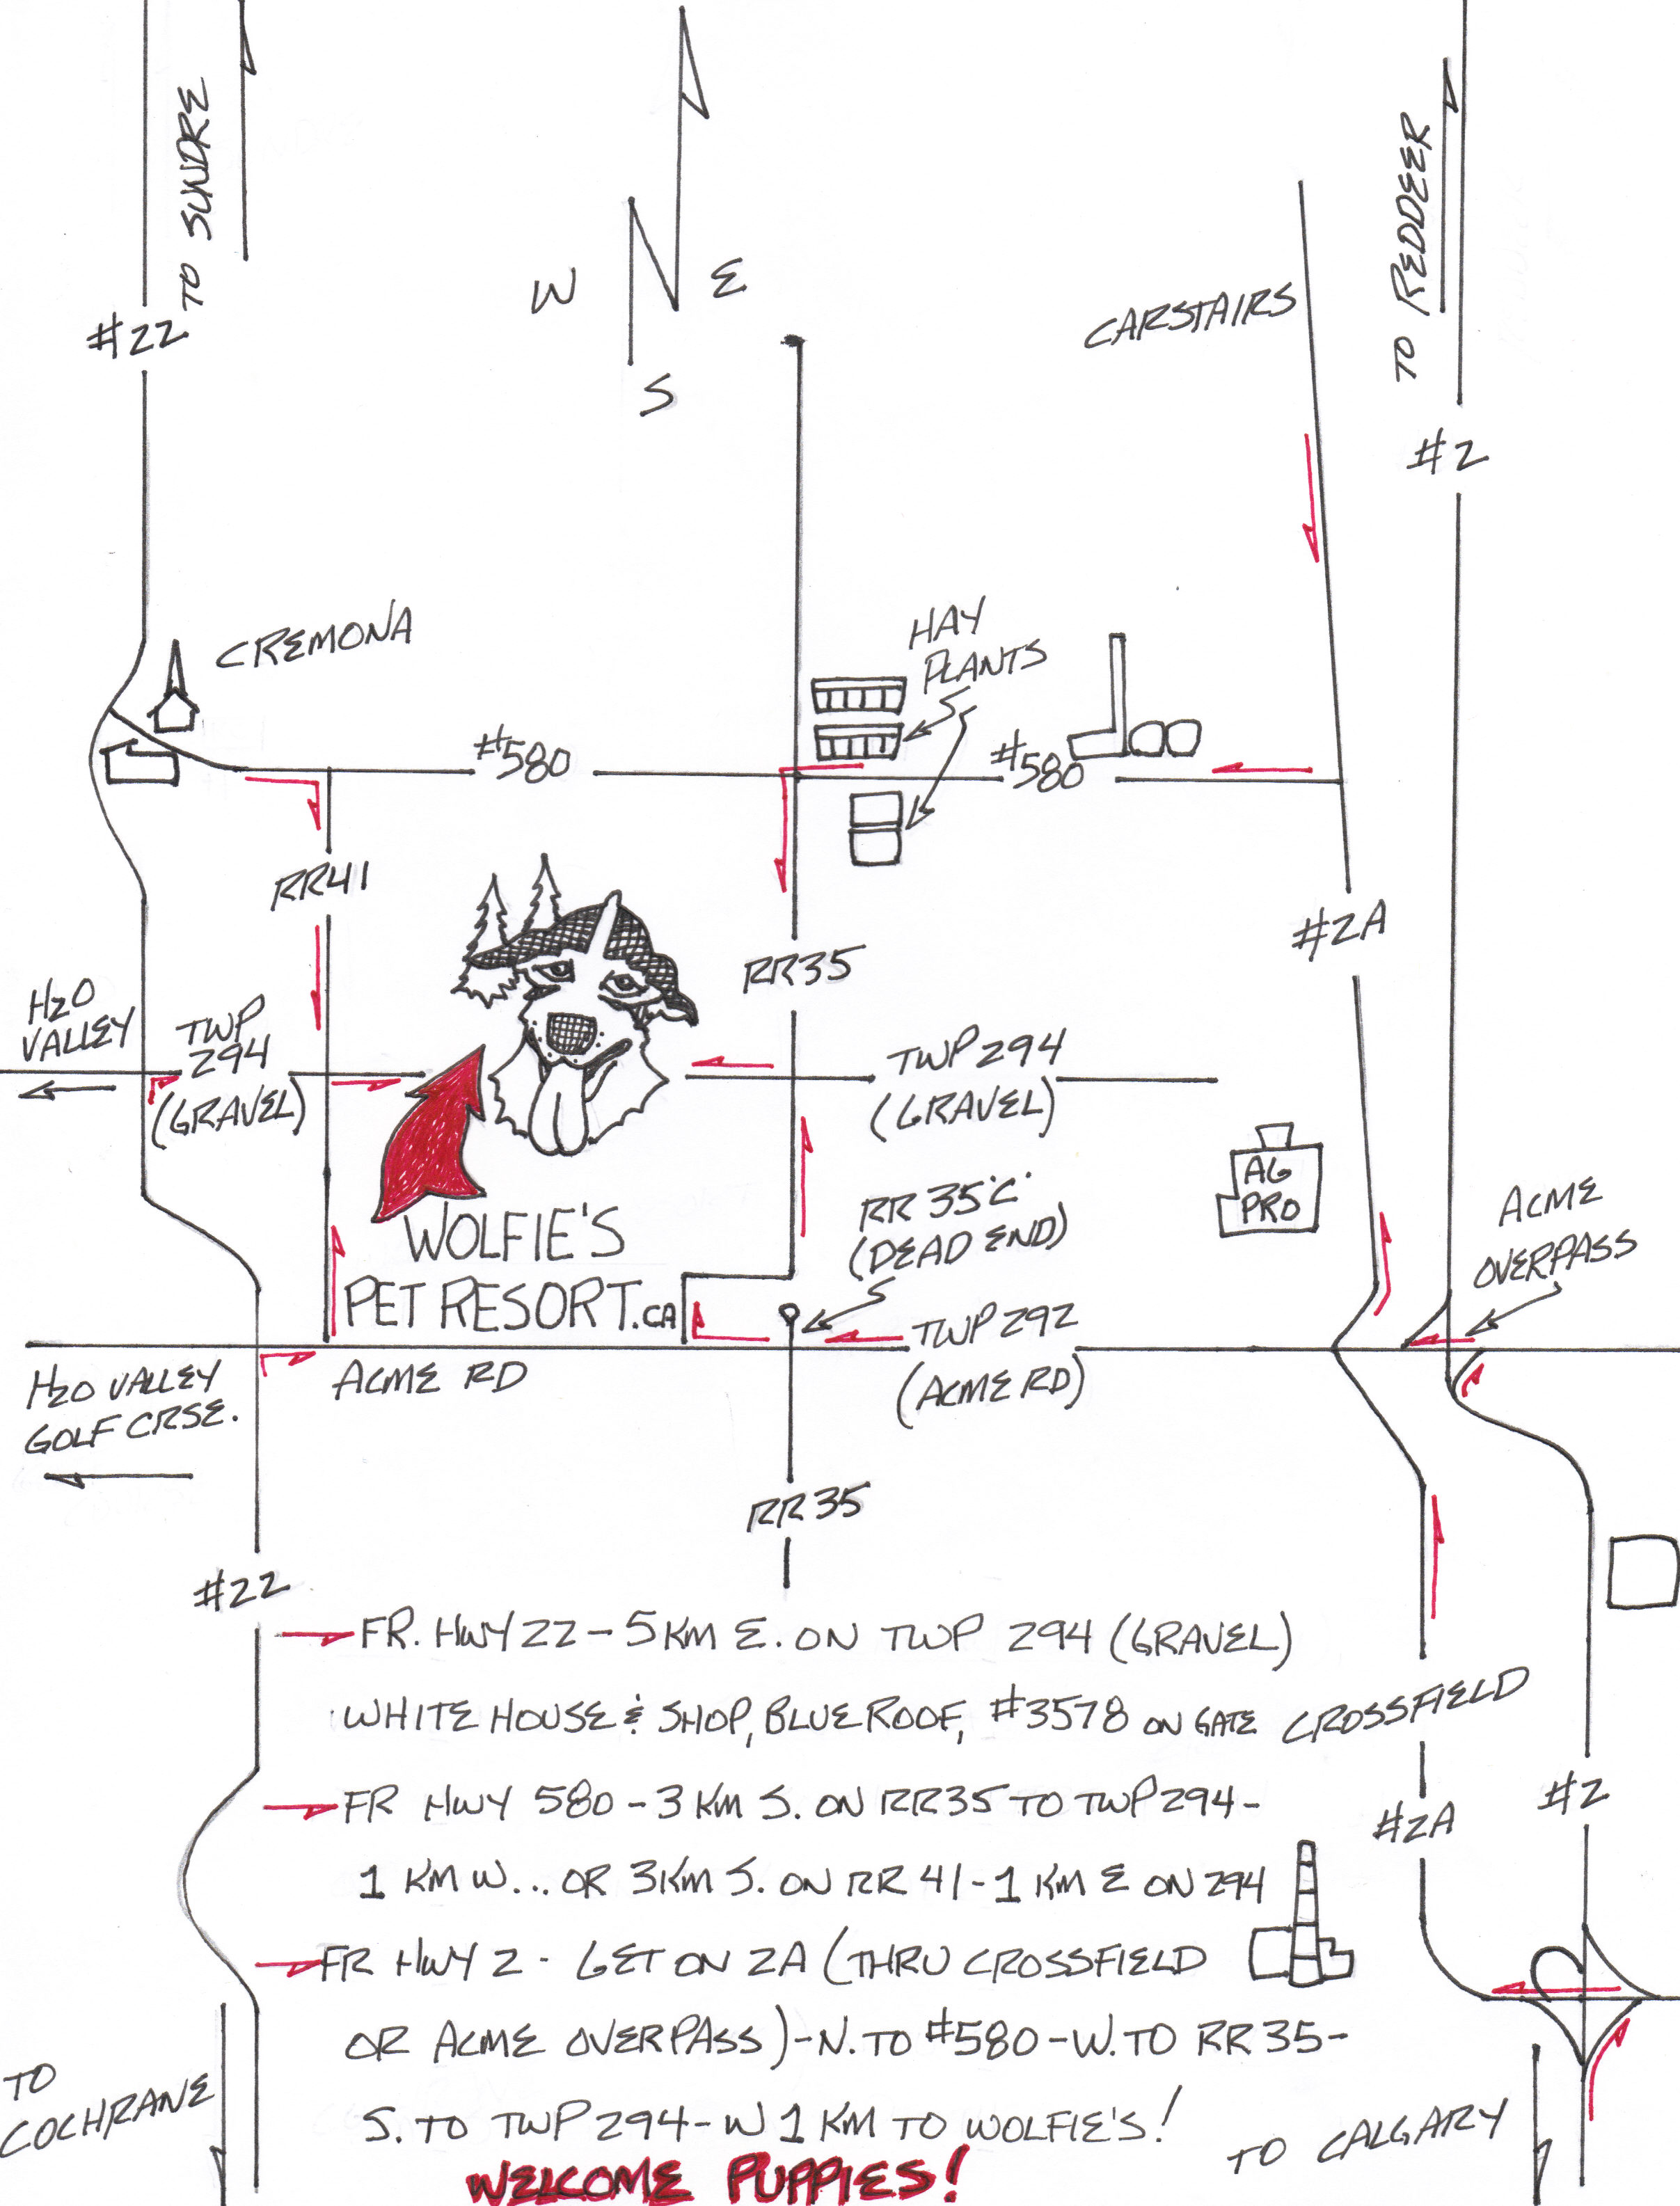 TO SUNDRE
N
W
E
S
TO REDDEER
#22
CARSTAIRS
#2
CREMONA
HAY
PLANTS
#580
#580
RR41
#2A
RR35
H2O
VALLEY
TWP
294
(GRAVEL)
TWP 294
(GRAVEL)
AG
PRO
RR 35 'C'
(DEAD END)
ACME
OVERPASS
WOLFIE'S
PET RESORT.CA
TWP 292
(ACME RD)
ACME RD
H2O VALLEY
GOLF CRSE.
RR 35
#22
FR. HWY 22 - 5 KM E. ON TWP 294 (GRAVEL)
WHITE HOUSE & SHOP, BLUE ROOF, #3578 ON GATE
CROSSFIELD
FR HWY 580 - 3 KM S. ON RR35 TO TWP 294 -
1 KM W... OR 3KM S. ON RR 41 - 1 KM E ON 294
#2A
#2
FR HWY 2 - GET ON 2A (THRU CROSSFIELD
OR ACME OVERPASS) - N. TO #580 - W. TO RR 35 -
S. TO TWP 294 - W 1 KM TO WOLFIE'S!
TO
COCHRANE
TO CALGARY
WELCOME PUPPIES!